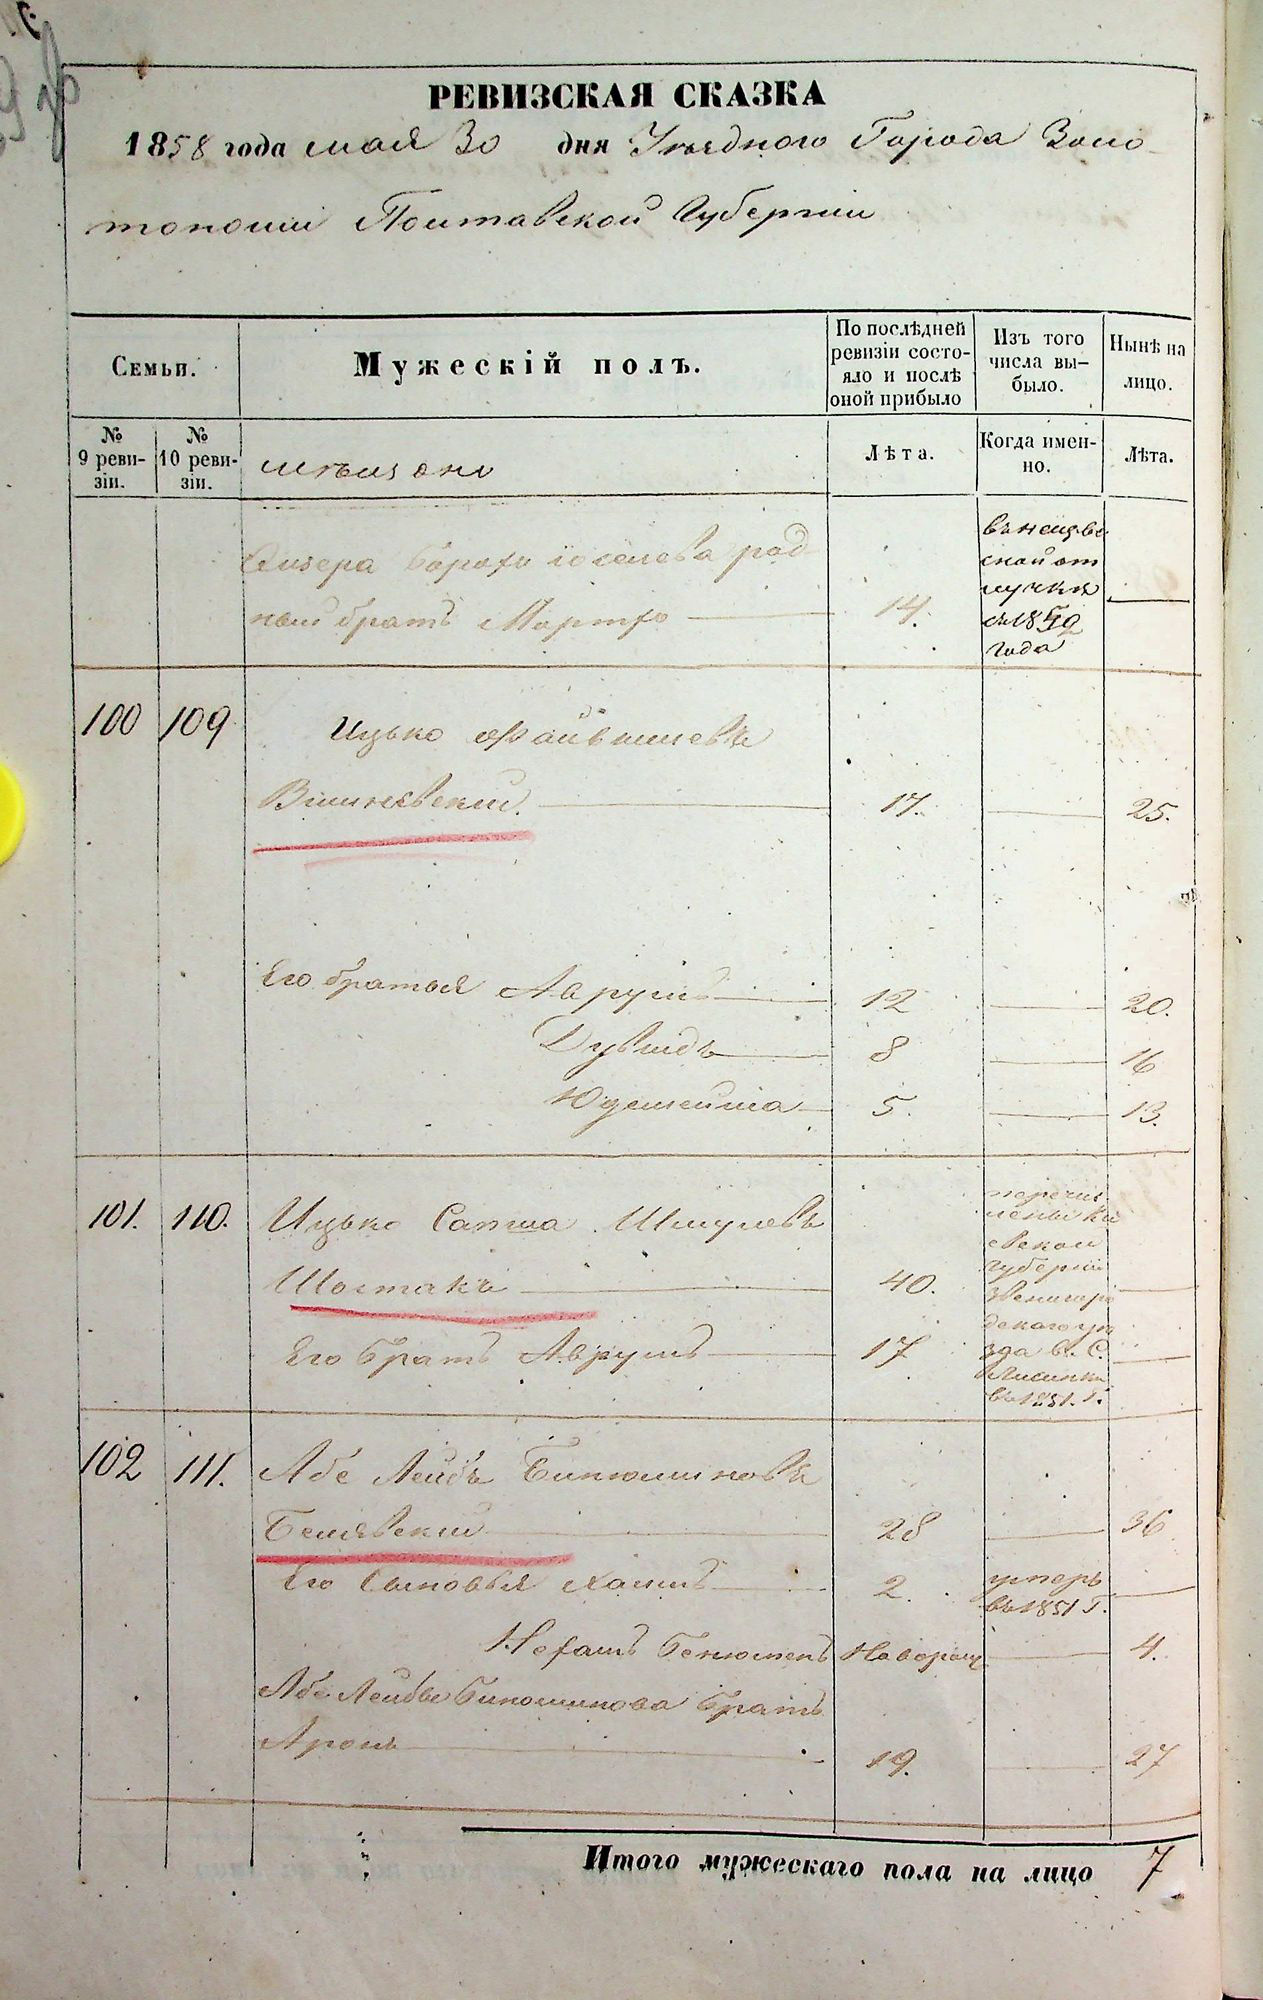 РЕВИЗСКАЯ СКАЗКА
1858 года мая 30 дня Уѣзднаго Города Золо
тоноши Полтавской Губерніи
Семьи.
Мужескій полъ.
По послѣдней ревизіи состо-
яло и послѣ
оной прибыло
Изъ того
числа вы-
было.
Нынѣ на
лицо.
№
9 реви-
зіи.
№
10 реви-
зіи.
мѣщане
Лѣта.
Когда имен-
но.
Лѣта.
Лизера Бороха Іоселева род
ный братъ Мортхо 14.
въ неизвѣ
сной от
лучки
съ 1852
года
100 109 Ицько Файвишевъ
Вишневскій. 17. 25.
Его братья Аврумъ 12 20.
Дувидъ 8 16
Юдешейма 5. 13.
101. 110. Ицько Сапша Шмулевъ
Шостакъ 40.
Его братъ Аврумъ 17
перечис
лены Кі
евской
Губерніи
Звенигоро
дскаго уѣ
зда в. С.
Лисинки
въ 1851. Г.
102 111. Абе Лейбъ Бинюминовъ
Белявскій 28 36
Его Сыновья Хаимъ 2. умеръ
въ 1851 Г.
Нехамъ Бенюменъ Новорож 4.
Абе Лейбы Бинюминова братъ
Аронъ 19. 27
Итого мужескаго пола на лицо 7